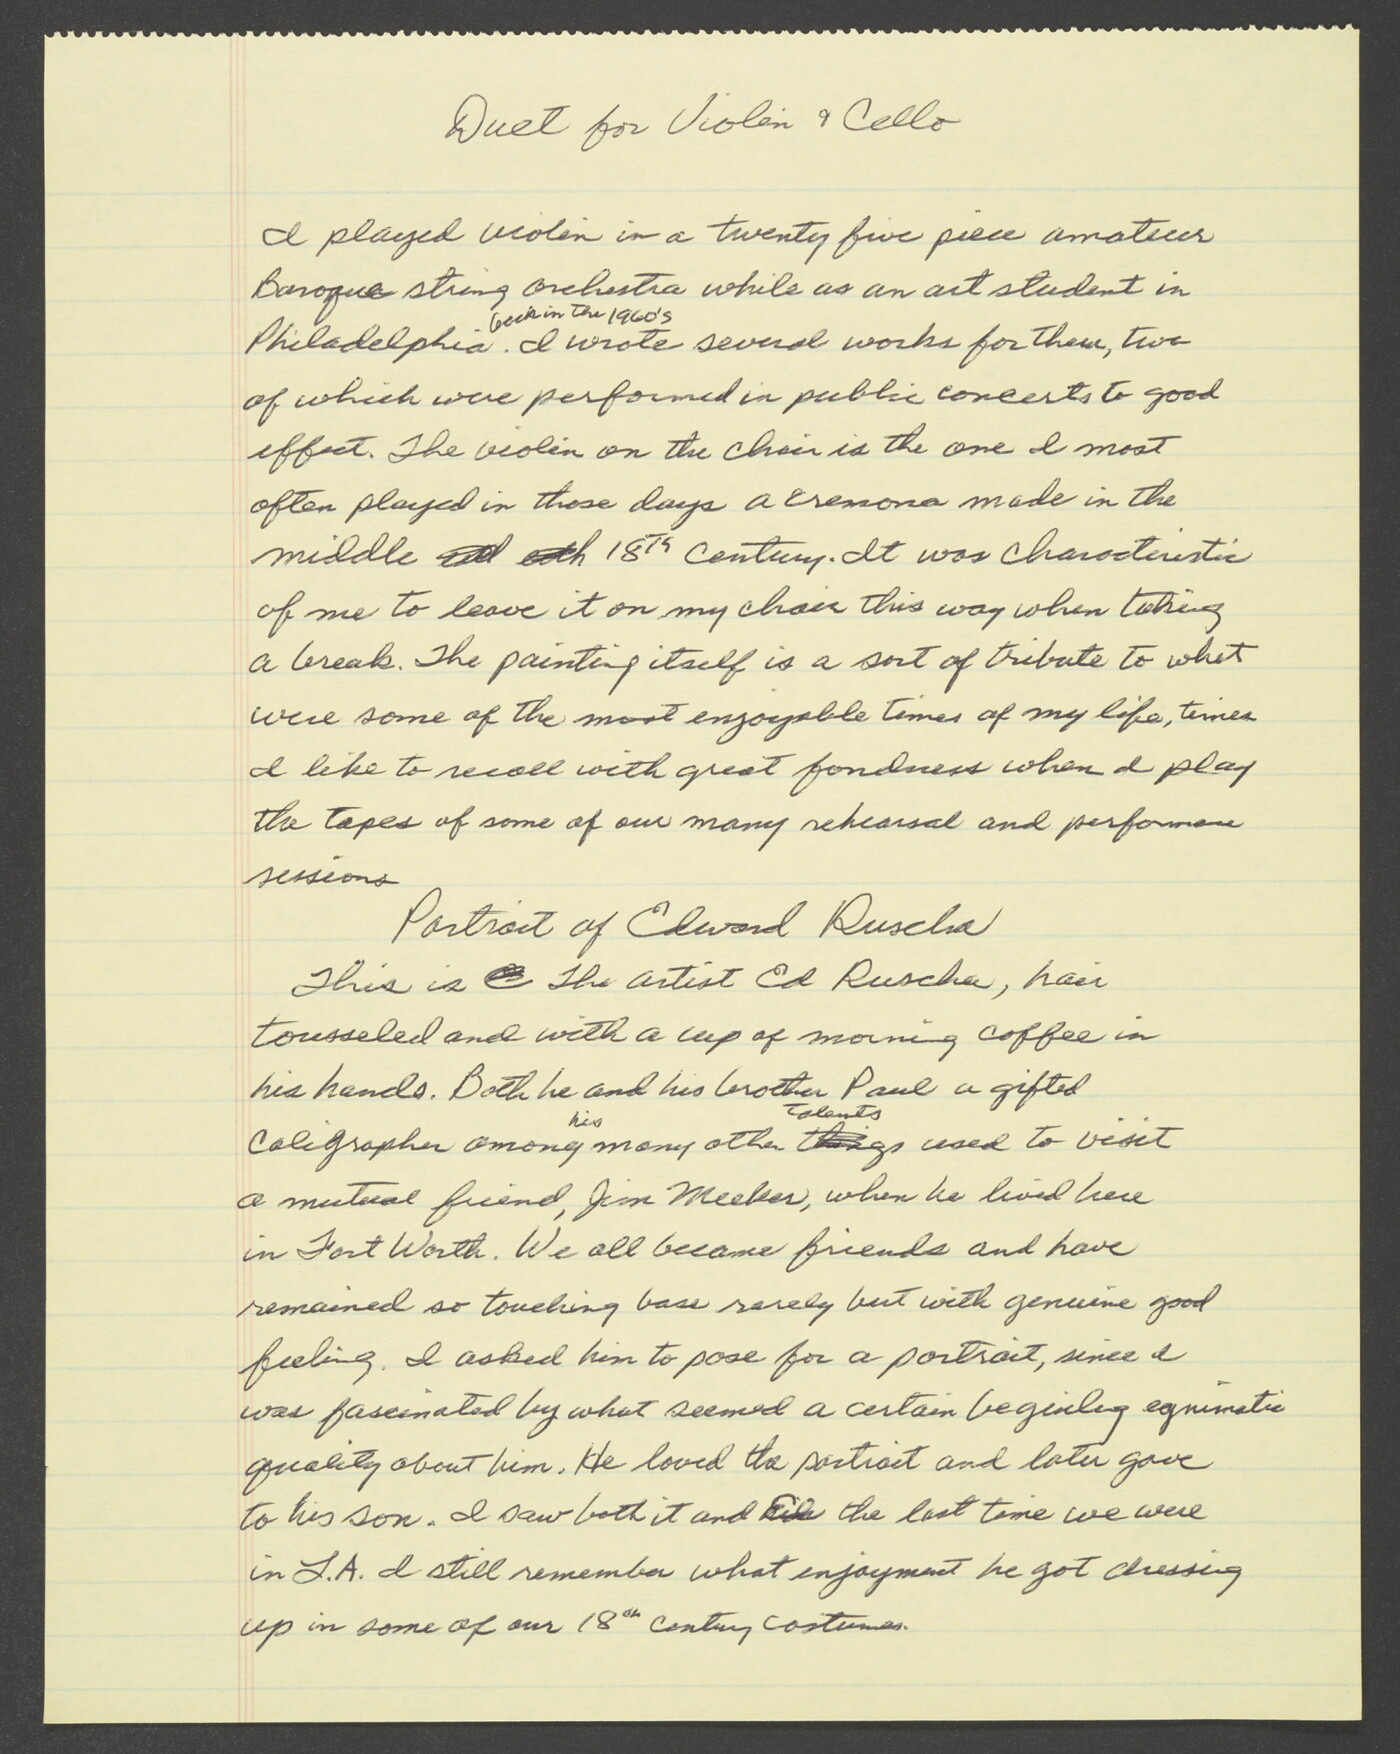 Duet for Violin & Cello
I played violin in a twenty five piece amateur
Baroque string orchestra while as an art student in
back in the 1960's
Philadelphia. I wrote several works for them, two
of which were performed in public concerts to good
effect. The violin on the chair is the one I most
often played in those days a Cremona made in the
middle 18th Century. It was characteristic
of me to leave it on my chair this way when taking
a break. The painting itself is a sort of tribute to what
were some of the most enjoyable times of my life, times
I like to recall with great fondness when I play
the tapes of some of our many rehearsal and performance
sessions
Portrait of Edward Ruscha
This is The artist Ed Ruscha, hair
tousseled and with a cup of morning coffee in
his hands. Both he and his brother Paul a gifted
his talents
Caligrapher among many other things used to visit
a mutual friend, Jim Meeker, when he lived here
in Fort Worth. We all became friends and have
remained so touching base rarely but with genuine good
feeling. I asked him to pose for a portrait, since I
was fascinated by what seemed a certain egnimatic
quality about him. He loved the portrait and later gave
to his son. I saw both it and the last time we were
in L.A. I still remember what enjoyment he got dressing
up in some of our 18th Century costumes.